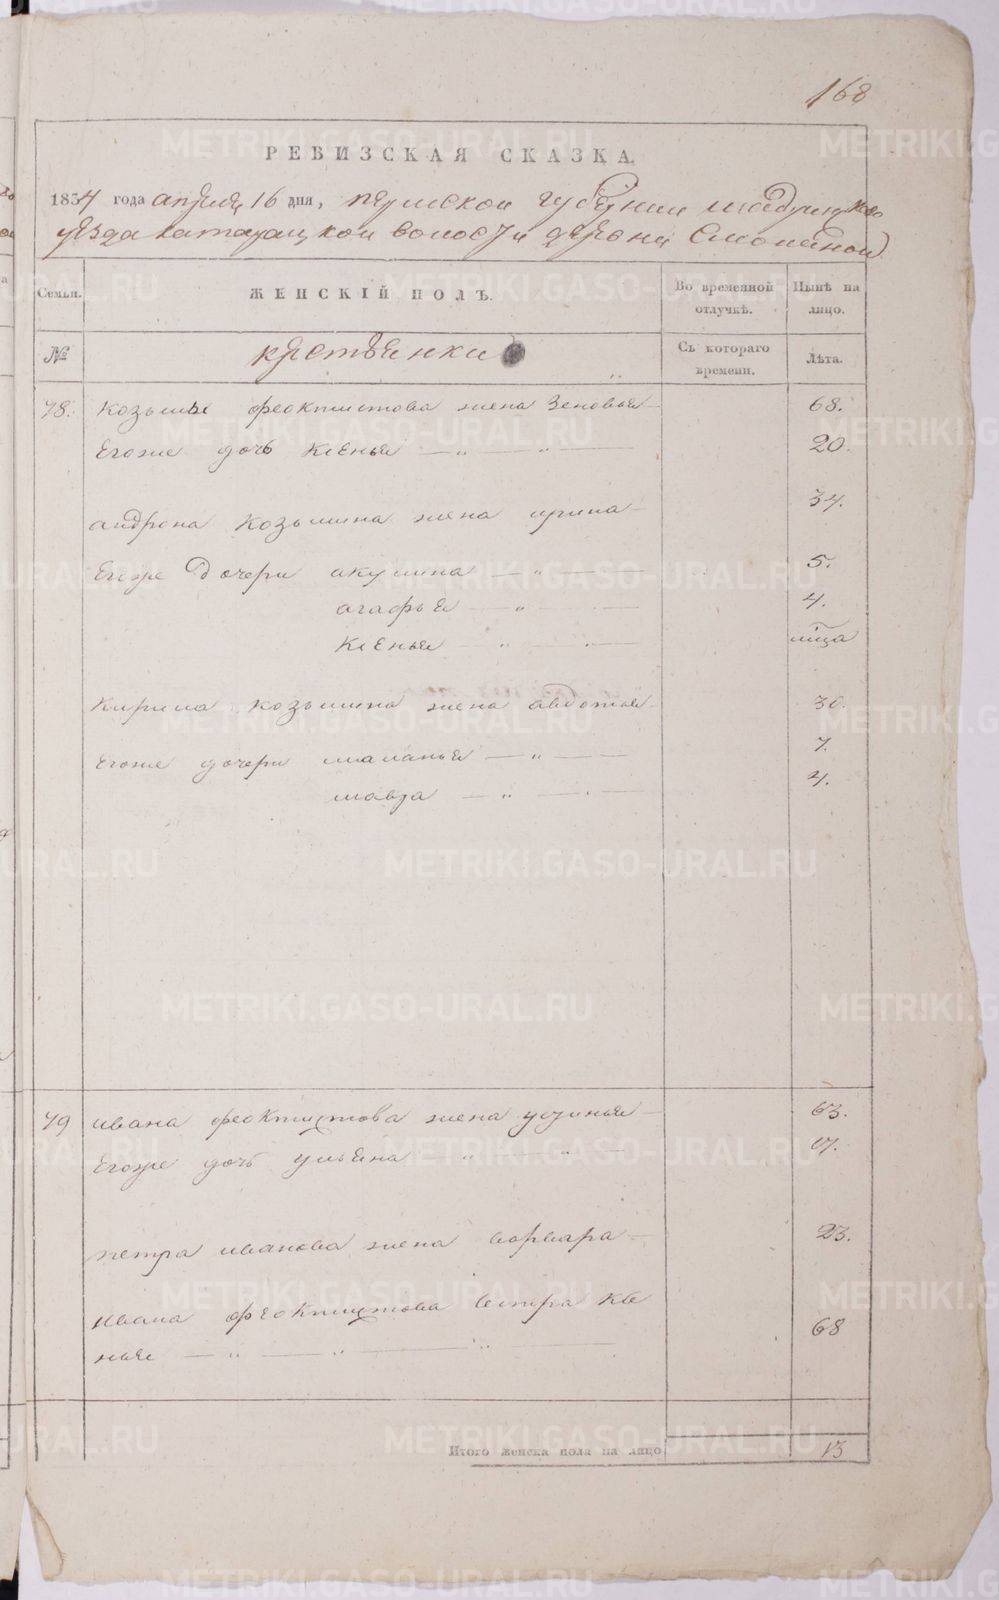 168
РЕВИЗСКАЯ СКАЗКА.
1834 года апреля 16 дня, пермской губернии шадринского
уезда катайской волости деревни
Семьи. ЖЕНСКІЙ ПОЛЪ. Во временной отлучкѣ. Нынѣ на лицо.
№ крестьянки Съ котораго времени. Лѣта.
78. козьмы феоктистова жена Зеновья 68.
Егоже дочь Ксенья 20.
андрона козьмина жена ирина 34.
Егоже дочери акулина 5.
агафья 4.
Ксенья
кирила козьмина жена авдотья 30.
Егоже дочери маланья 7.
мавра 4.
79 ивана феоктистова жена устинья 63.
Егоже дочь ульяна 17.
петра иванова жена варвара 23.
ивана феоктистова сестра Ксе
нья 68
Итого женска пола на лицо 13
METRIKI.GASO-URAL.RU